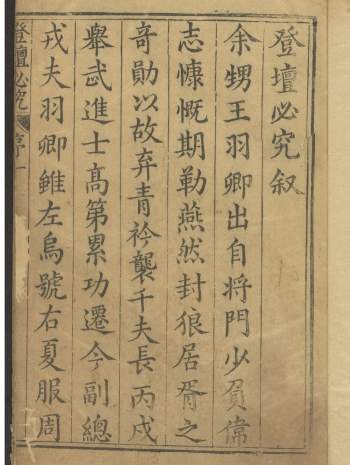 登壇必究叙
余甥王羽卿出自将門少負偉
志慷慨期勒燕然封狼居胥之
竒勛以故弃青衿襲千夫長丙戍
舉武進士高第累功遷今副總
戎夫羽卿雖左烏號右夏服周
登壇必究 序 一